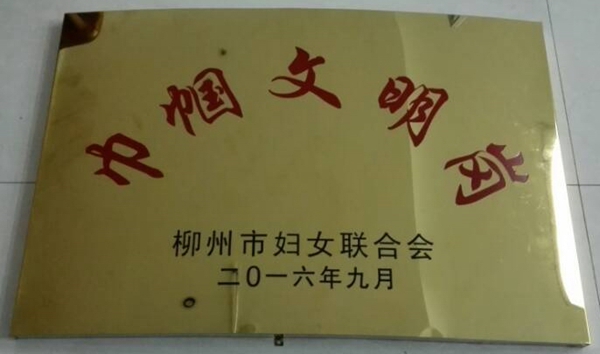 巾帼文明岗
柳州市妇女联合会
二〇一六年九月